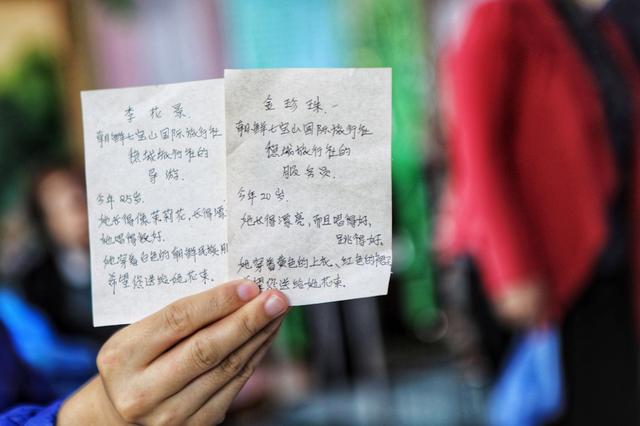 李花景.
朝鲜七宝山国际旅行社
稳城旅行社的
导游.
今年25岁.
她长得像茉莉花,长得漂
她唱得较好.
她穿着白色的朝鲜民族服
希望您送给她花束.
金珍珠.
朝鲜七宝山国际旅行社
稳城旅行社的
服务员
今年20岁.
她长得漂亮,而且唱得好,
跳得好.
她穿着黄色的上衣、红色的裙
希望您送给她花束.